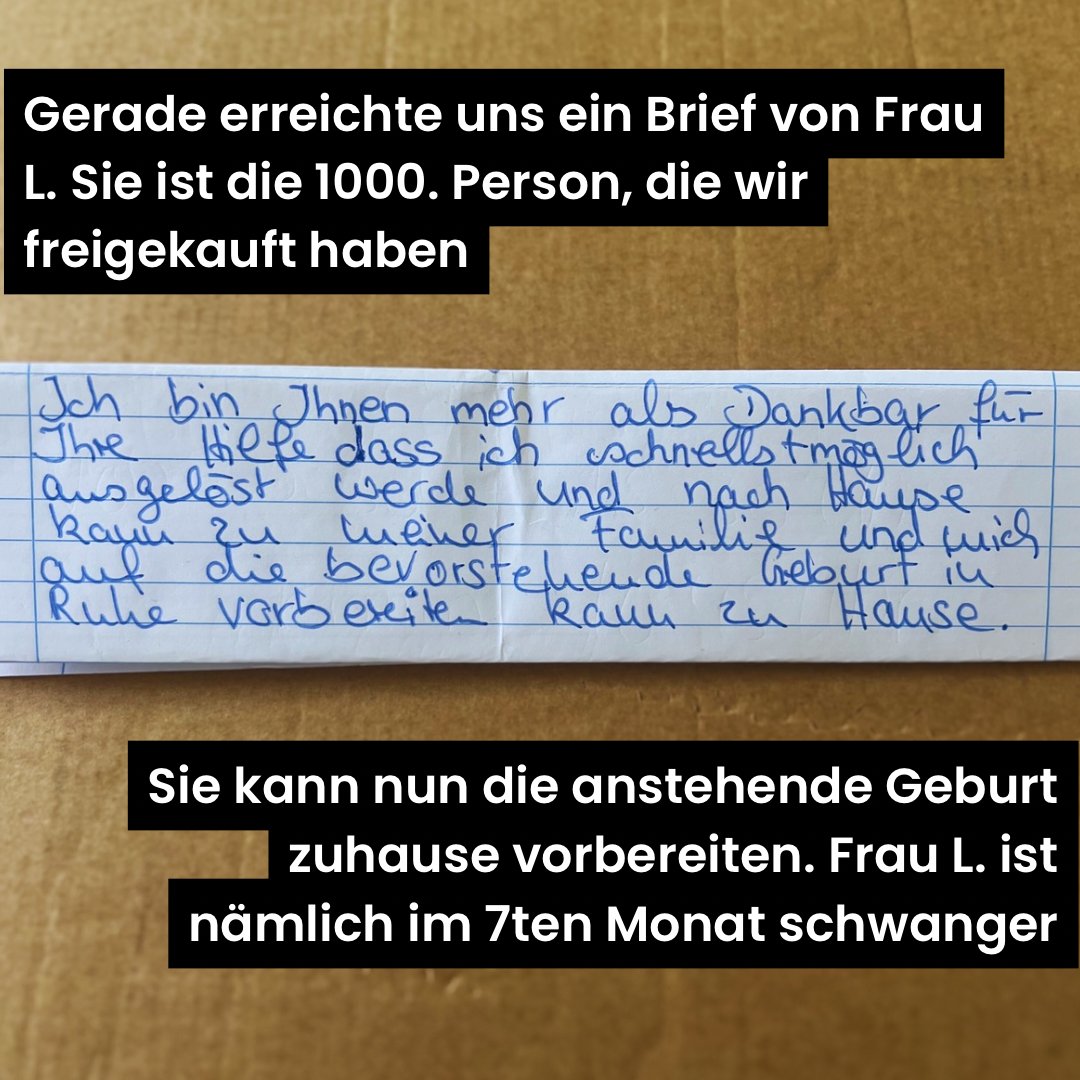 Gerade erreichte uns ein Brief von Frau
L. Sie ist die 1000. Person, die wir
freigekauft haben
Ich bin Ihnen mehr als Dankbar für
Ihre Hilfe dass ich schnellstmöglich
ausgelöst werde und nach Hause
kann zu meiner Familie und mich
auf die bevorstehende Geburt in
Ruhe vorbereiten kann zu Hause.
Sie kann nun die anstehende Geburt
zuhause vorbereiten. Frau L. ist
nämlich im 7ten Monat schwanger